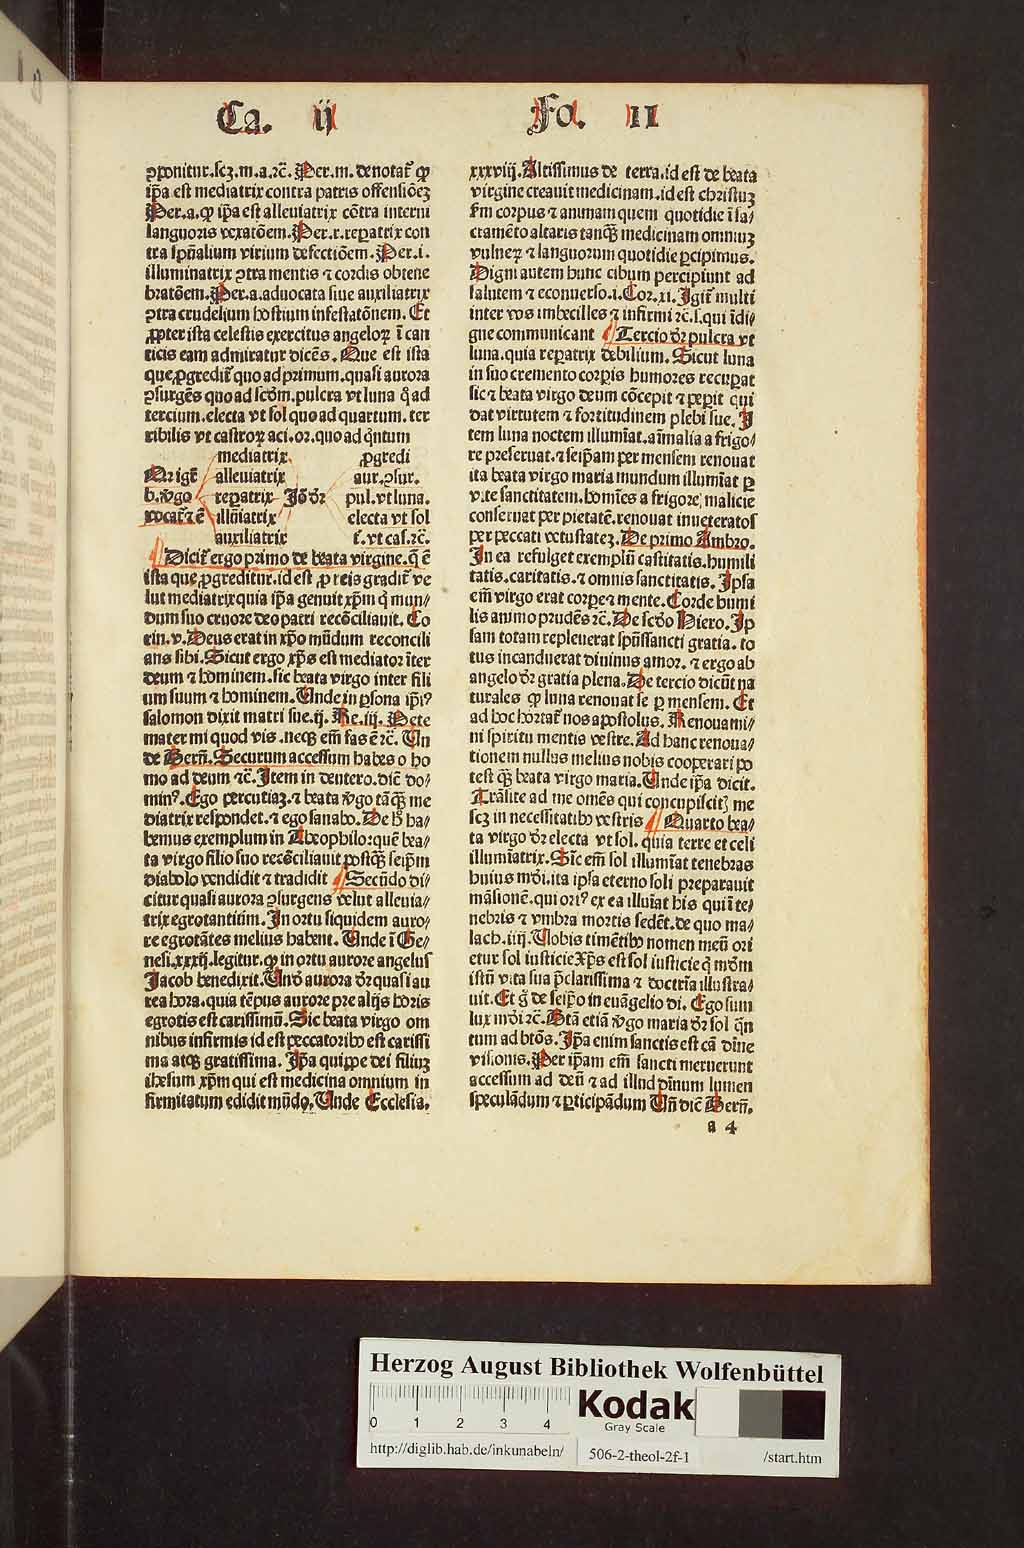 Ca. ij Fo. II
ꝓponitur.scꝫ.m.a.ꝛc̃. Per.m.denotat̃ ꝙ
ip̃a est mediatrix contra patris offensiõeꝫ
Per.a.ꝙ ip̃a est alleuiatrix cõtra interni
languoris vexatõem. Per.r.reꝑatrix con
tra sp̃nalium virium defectiõem. Per.i.
illuminatrix ꝯtra mentis ⁊ cordis obtene
bratõem. Per.a.aduocata siue auxiliatrix
ꝯtra crudelium hostium infestatõnem. Et
ꝓpter ista celestis exercitus angeloꝝ ĩ can
ticis eam admiratur dicẽs. Que est ista
que ꝓgredit̃ quo ad primum.quasi aurora
ꝯsurgẽs quo ad scõm.pulcra vt luna q̃ ad
tercium.electa vt sol quo ad quartum.ter
ribilis vt castroꝝ aci.or.quo ad q̃ntum
mediatrix ꝓgredi
Origẽ alleuiatrix aur.ꝯsur.
b.v̓go reꝑatrix Jõ dr̃ pul.vt luna.
vocat̃ ⁊ ẽ illũiatrix electa vt sol
auxiliatrix t̃.vt cas.ꝛc̃.
Dicit̃ ergo primo de beata virgine.q̃ ẽ
ista que ꝓgreditur.id est ꝓ reis gradit̃ ve
lut mediatrix quia ip̃a genuit xp̃m q̃ mun/
dum suo cruore deo patri recõciliauit. Co
rin.v. Deus erat in xp̃o mũdum reconcili
ans sibi. Sicut ergo xp̃s est mediator ĩter
deum ⁊ hominem.sic beata virgo inter fili
um suum ⁊ hominem. Unde in ꝑsona ip̃iꝰ
salomon dixit matri sue.ij. Re.iij. Pete
mater mi quod vis.neqꝫ em̃ fas ẽ ꝛc̃. Un
de Bern̄. Securum accessum habes o ho
mo ad deum ꝛc̃. Item in deutero.dic̃ do/
minꝰ. Ego percutiaꝫ.⁊ beata v̓go tãqꝫ me
diatrix respondet.⁊ ego sanabo. De h̓ ha/
bemus exemplum in Theophilo:quẽ bea/
ta virgo filio suo recõciliauit postqꝫ seip̃m
diabolo vendidit ⁊ tradidit Secũdo di/
citur quasi aurora ꝯsurgens velut alleuia/
trix egrotantium. In ortu siquidem auro/
re egrotãtes melius habent. Unde ĩ Ge/
nesi.xxxij.legitur.ꝙ in ortu aurore angelus
Jacob benedixit. Un̄ aurora dr̃ quasi au
rea hora.quia tẽpus aurore pre alijs horis
egrotis est carissimũ. Sic beata virgo om
nibus infirmis id est peccatoribꝰ est carissi
ma atqꝫ gratissima. Ip̃a quippe dei filiuꝫ
ihesum xp̃m qui est medicina omnium in
firmitatum edidit mũdo. Unde Ecclesia.
xxxviij. Altissimus de terra.id est de beata
virgine creauit medicinam.id est christuꝫ
s̃m corpus ⁊ animam quem quotidie ĩ sa/
cramẽto altaris tanqꝫ medicinam omniuꝫ
vulneꝝ ⁊ languorum quotidie ꝑcipimus.
Digni autem hunc cibum percipiunt ad
salutem ⁊ econuerso.i. Cor.xi. Igit̃ multi
inter vos imbecilles ⁊ infirmi ꝛc̃.s.qui ĩdi/
gne communicant Tercio dr̃ pulcra vt
luna.quia reꝑatrix debilium. Sicut luna
in suo cremento corꝑis humores recuꝑat
sic ⁊ beata virgo deum cõcepit ⁊ peperit qui
dat virtutem ⁊ fortitudinem plebi sue. I
tem luna noctem illumĩat.aĩmalia a frigo/
re preseruat.⁊ seip̃am per mensem renouat
ita beata virgo maria mundum illumĩat ꝑ
vite sanctitatem.homĩes a frigore malicie
conseruat per pietatẽ.renouat inueteratos
per peccati vetustateꝫ. De primo Ambro.
In ea refulget exemplũ castitatis.humili
tatis.caritatis.⁊ omnis sanctitatis. Ipsa
em̃ virgo erat corpe ⁊ mente. Corde humi
lis animo prudẽs ꝛc̃. De scdo Hiero. Ip
sam totam repleuerat spũssancti gratia.to
tus incanduerat diuinus amor.⁊ ergo ab
angelo dr̃ gratia plena. De tercio dicũt na
turales ꝙ luna renouat se ꝑ mensem. Et
ad hoc hortat̃ nos apostolus. Renouami/
ni spiritu mentis vestre. Ad hanc renoua/
tionem nullus melius nobis cooperari po
test qꝫ beata virgo maria. Unde ip̃a dicit.
Trãsite ad me om̃es qui concupiscitꝭ me
scꝫ in necessitatibꝰ vestris Quarto bea/
ta virgo dr̃ electa vt sol. quia terre et celi
illumĩatrix. Sic em̃ sol illumĩat tenebras
huius mõi.ita ipsa eterno soli preparauit
mãsionẽ.qui oriꝰ ex ea illuĩat his qui ĩ te/
nebris ⁊ vmbra mortis sedẽt.de quo ma/
lach.iiij. Uobis timẽtibꝰ nomen meũ ori
etur sol iusticie Xp̃s est sol iusticie q̃ mõm
istũ vita sua p̃clarissima ⁊ doctrĩa illustra/
uit. Et g̃ de seip̃o in euãgelio di. Ego sum
lux mõi ꝛc̃. Btã etiã v̓go maria dr̃ sol q̃n
tum ad btõs. Ip̃a enim sanctis est cã diĩe
visionis. Per ip̃am em̃ sancti meruerunt
accessum ad deũ ⁊ ad illud diĩnum lumen
speculãdum ⁊ ꝑticipãdum Un̄ dic̃ Bern̄.
a 4
Herzog August Bibliothek Wolfenbüttel
0 1 2 3 4
Kodak
Gray Scale
http://diglib.hab.de/inkunabeln/ 506-2-theol-2f-1 /start.htm